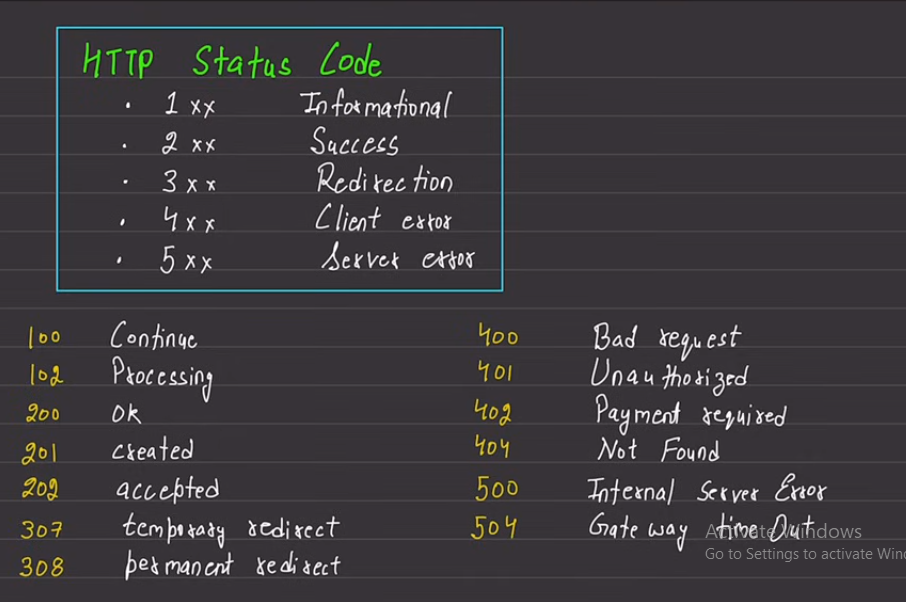 HTTP Status Code
· 1xx Informational
· 2xx Success
· 3xx Redirection
· 4xx Client error
· 5xx Server error
100 Continue
102 Processing
200 OK
201 created
202 accepted
307 temporary redirect
308 permanent redirect
400 Bad request
401 Unauthorized
402 Payment required
404 Not Found
500 Internal Server Error
504 Gate way time Out
Activate Windows
Go to Settings to activate Win